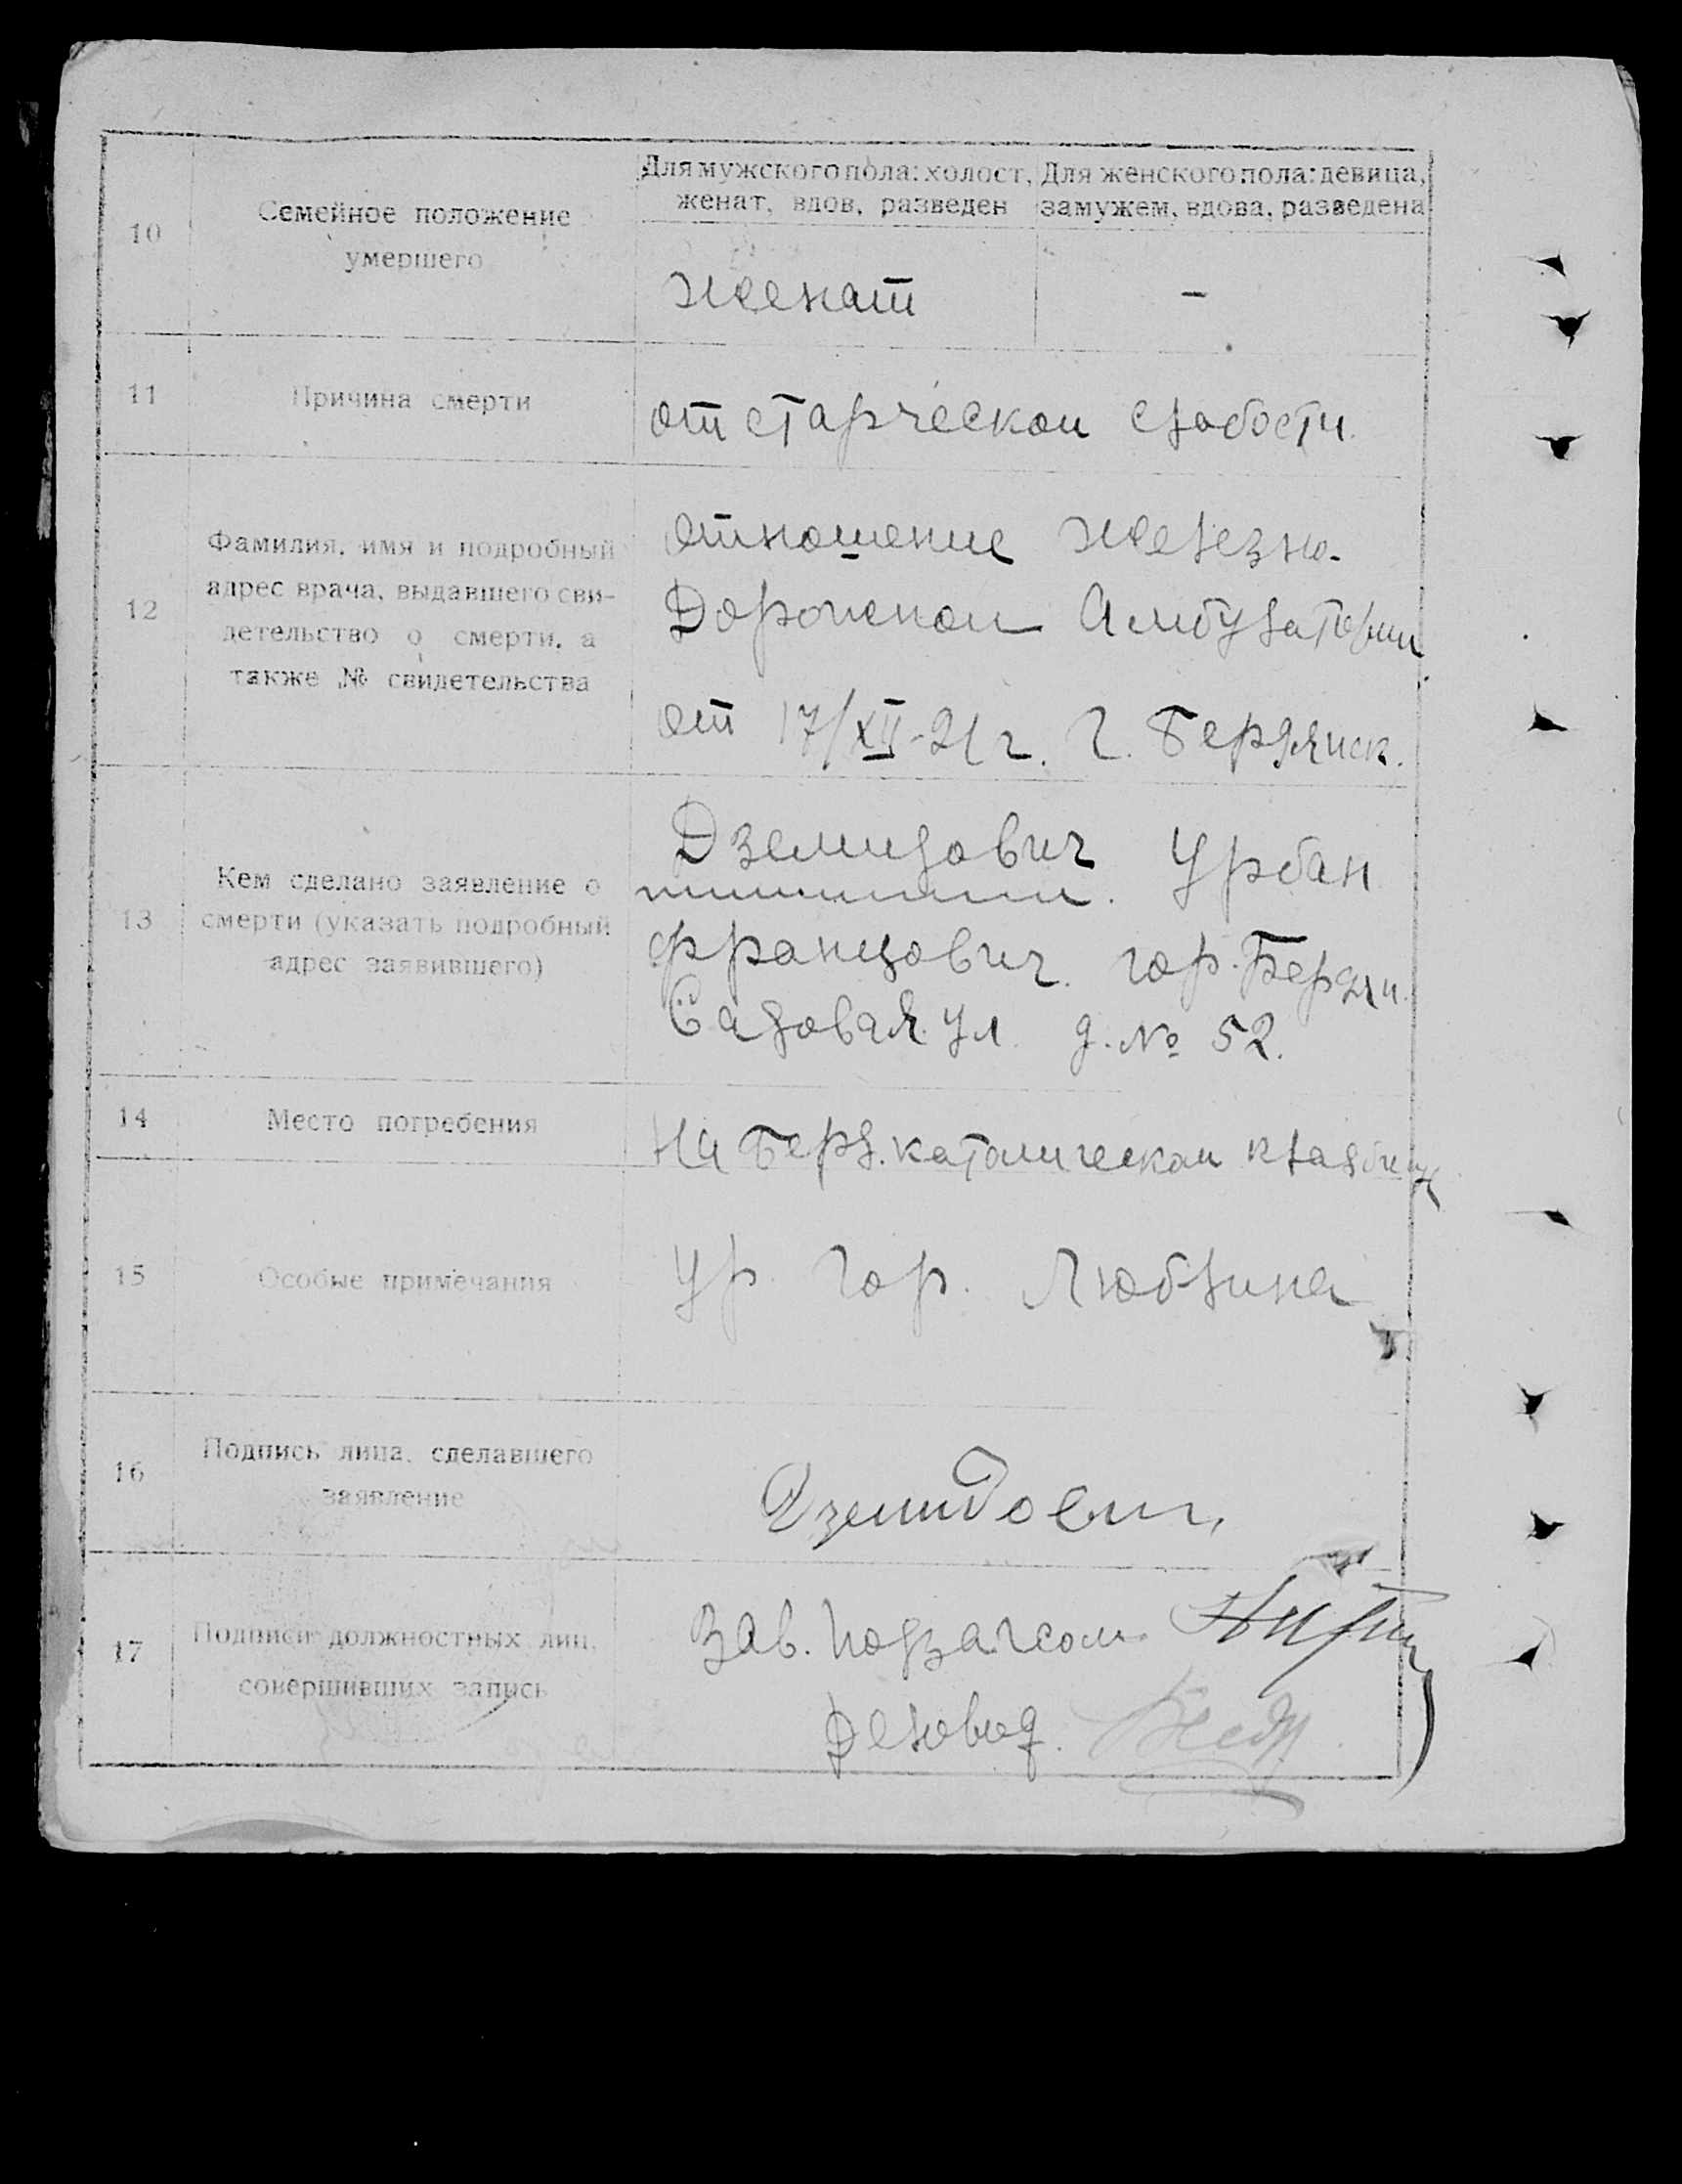 Для мужского пола: холост, женат, вдов, разведен
Для женского пола: девица, замужем, вдова, разведена
10
Семейное положение
умершего
женат
-
11
Причина смерти
от старческой слабости.
12
Фамилия, имя и подробный
адрес врача, выдавшего сви-
детельство о смерти, а
также № свидетельства
Отношение железно-
Дорожной Амбулатории
от 17/XII-21 г. г. Бердянск.
13
Кем сделано заявление о
смерти (указать подробный
адрес заявившего)
Дземидович Урбан
Францович. гор. Бердян.
Садовая ул д. № 52.
14
Место погребения
На Берд. католическом кладбище
15
Особые примечания
Ур. гор. Люблина
16
Подпись лица, сделавшего
заявление
Дземидович
17
Подписи должностных лиц,
совершивших запись
Зав. подзагсом
Деловод.